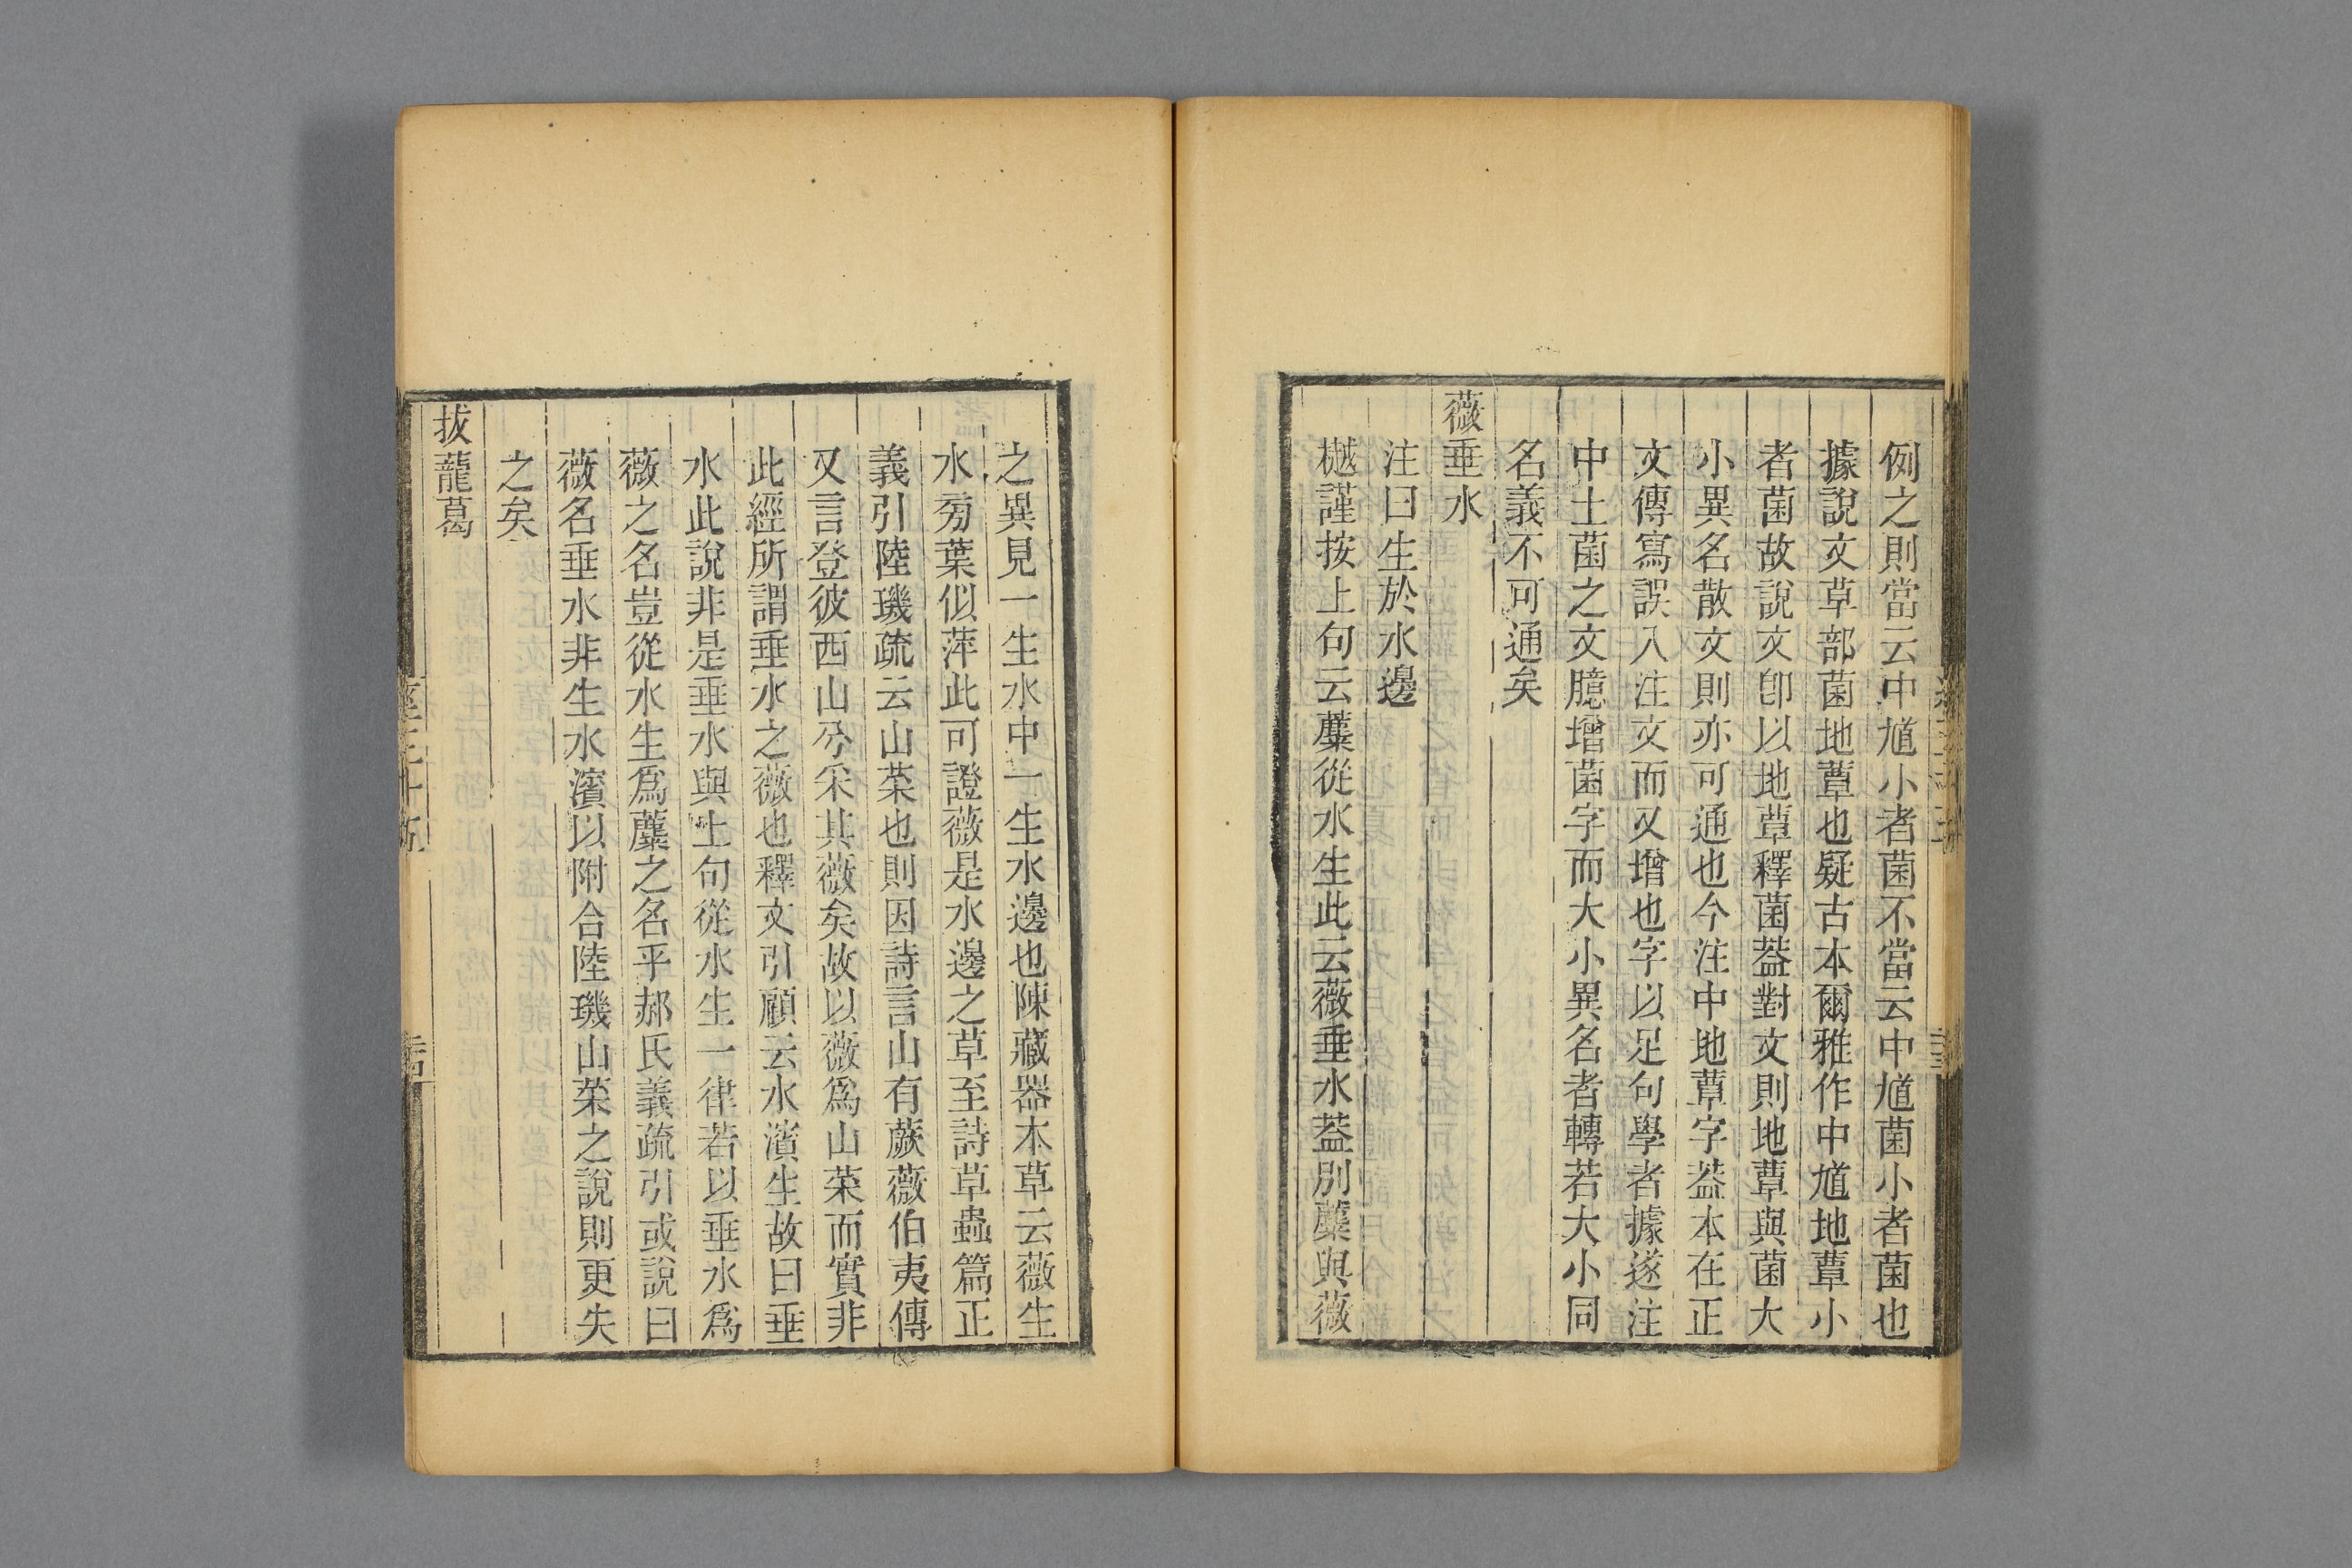 例之則當云中馗小者菌不當云中馗菌小者菌也
據說文草部菌地蕈也疑古本爾雅作中馗地蕈小
者菌故說文卽以地蕈釋菌葢對文則地蕈與菌大
小異名散文則亦可通也今注中地蕈字葢本在正
文傳寫誤入注文而又增也字以足句學者據遂注
中土菌之文臆增菌字而大小異名者轉若大小同
名義不可通矣
薇垂水
注曰生於水邊
樾謹按上句云蘪從水生此云薇垂水葢別蘪與薇
之異見一生水中一生水邊也陳藏器本草云薇生
水旁葉似萍此可證薇是水邊之草至詩草蟲篇正
義引陸璣疏云山菜也則因詩言山有蕨薇伯夷傳
又言登彼西山兮采其薇矣故以薇爲山菜而實非
此經所謂垂水之薇也釋文引顧云水濱生故曰垂
水此說非是垂水與上句從水生一律若以垂水爲
薇之名豈從水生爲蘪之名乎郝氏義疏引或說曰
薇名垂水非生水濱以附合陸璣山菜之說則更失
之矣
拔蘢葛